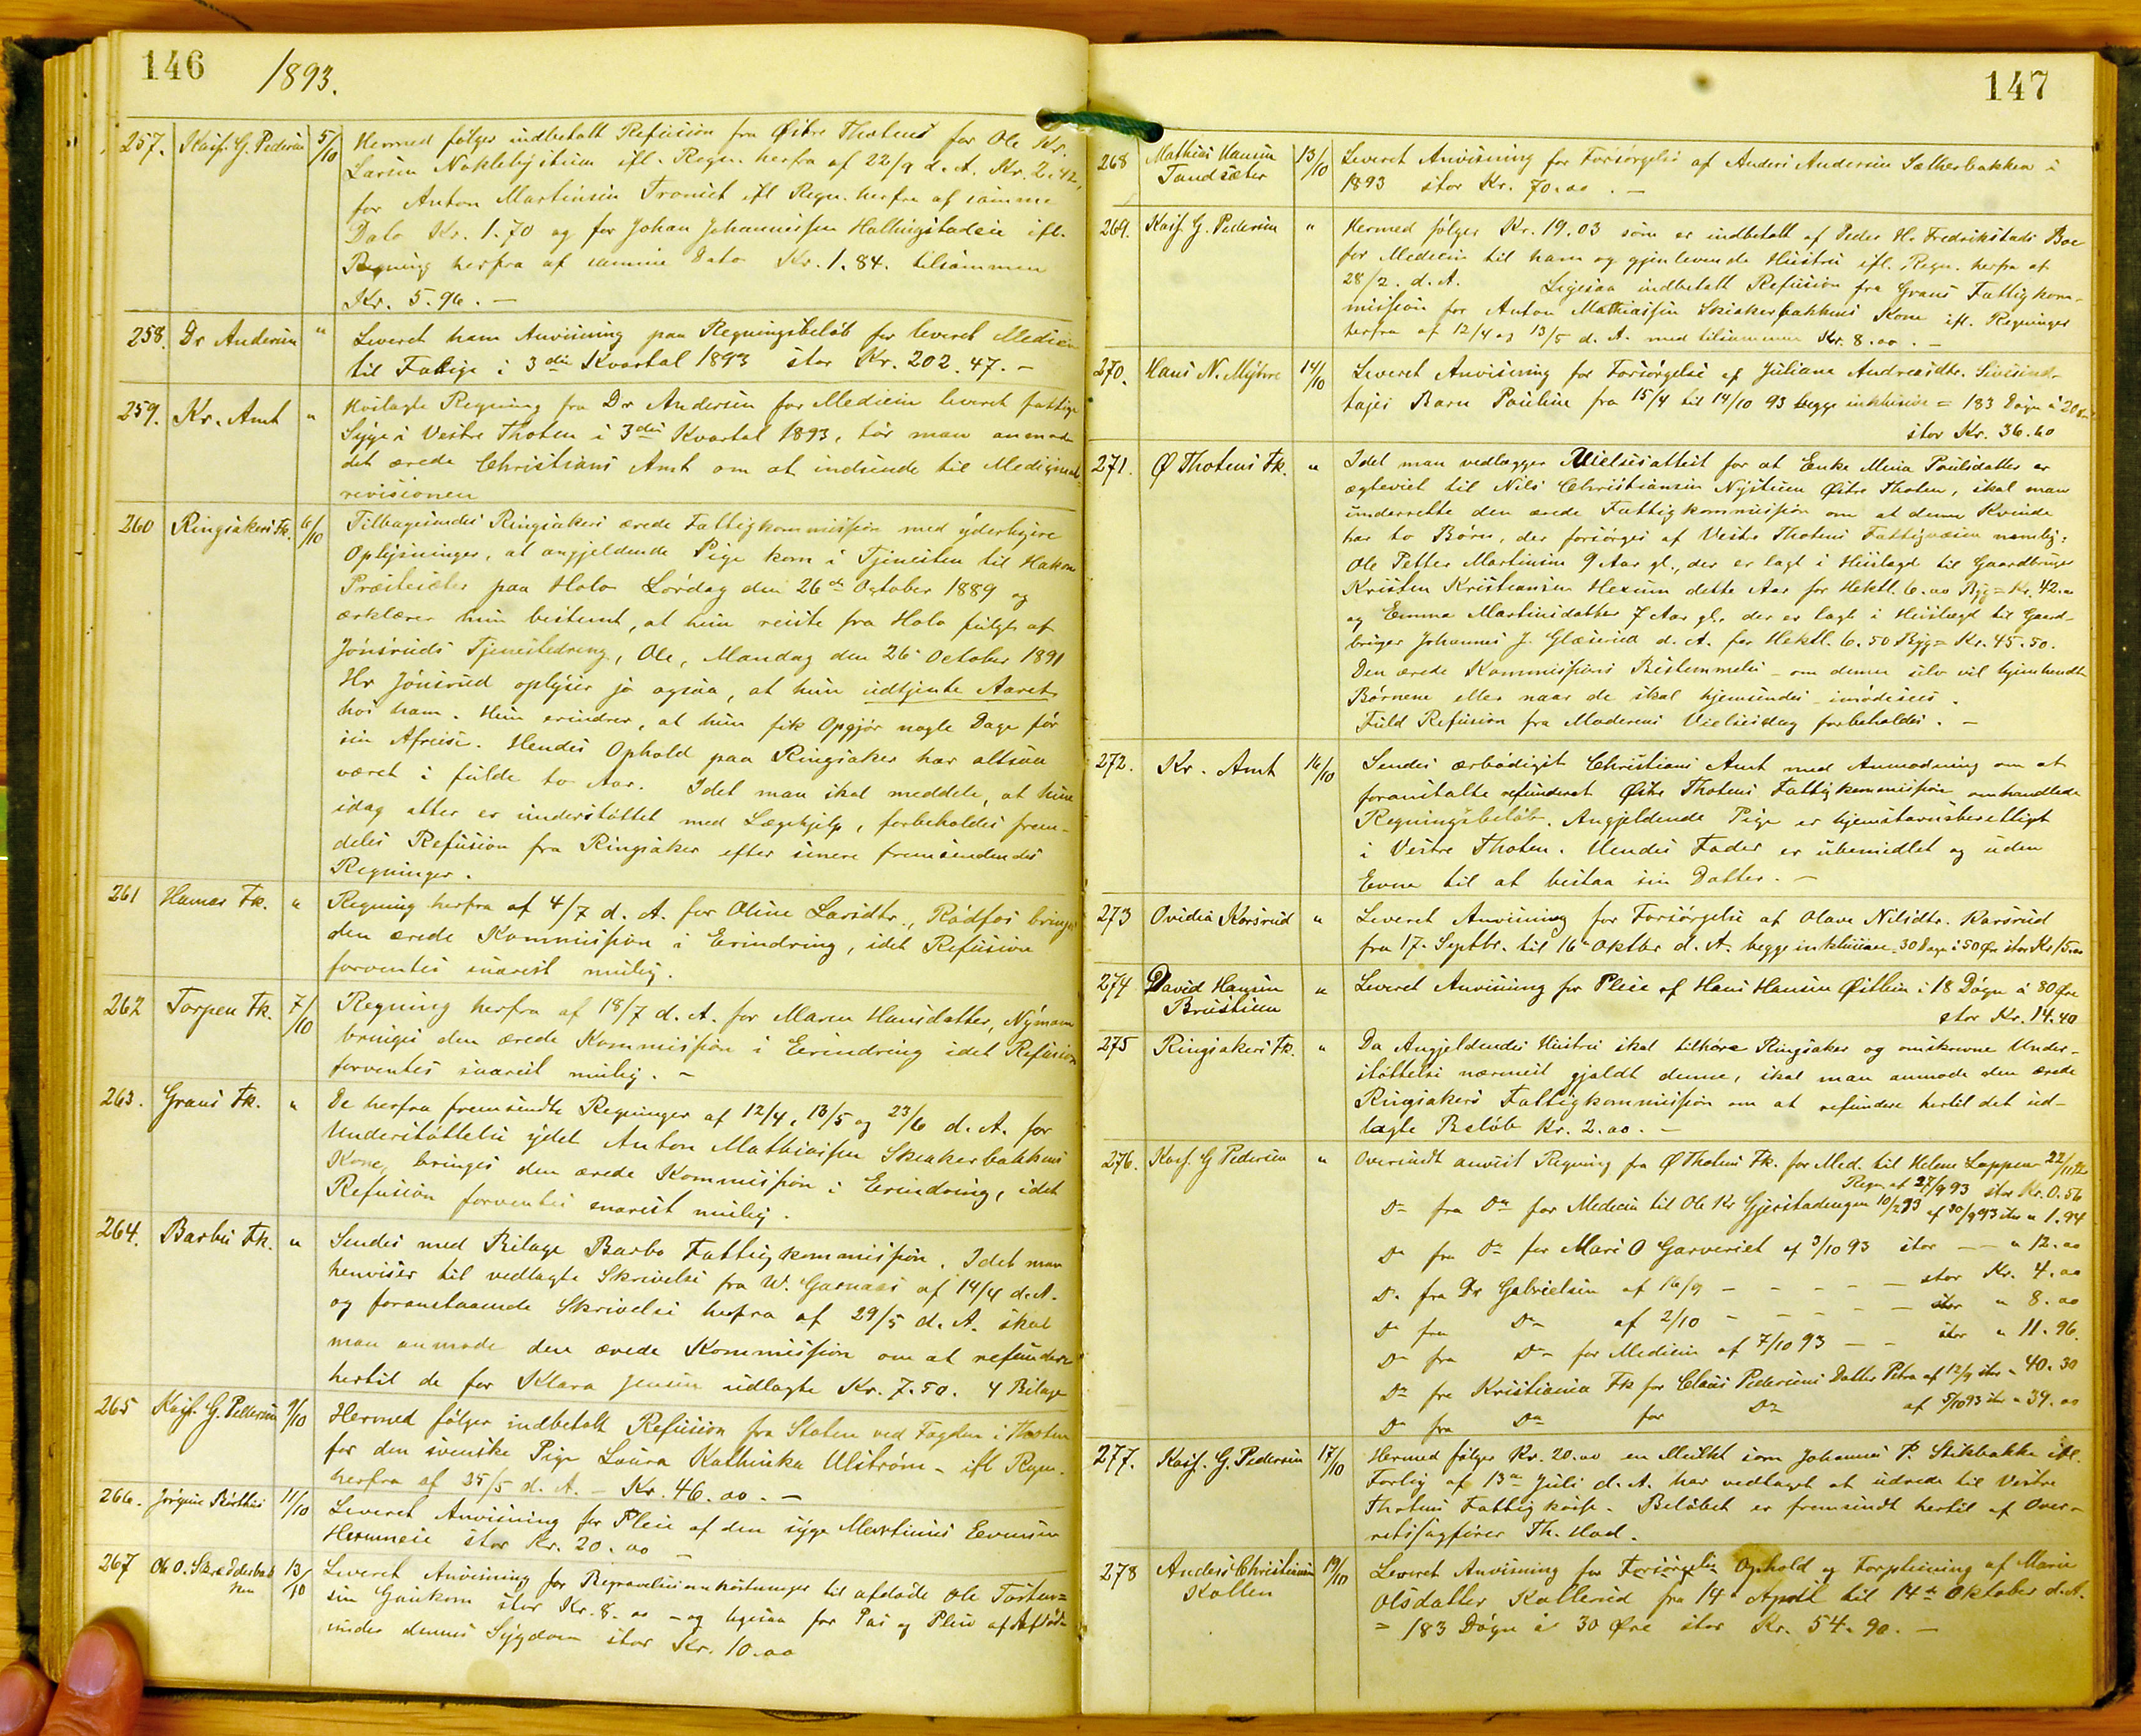 146
1893.
257. Kasf. G. Pedersen 5/10 Hermed følger indbetalt Refusion fra Østre Thotens for Ole Kr.
Larsen Naklebystuen ifl. Regn. herfra af 22/9 d. A. Kr. 2.42,
for Anton Martinsen Tromiet ifl Regn. herfra af samme
Dato Kr. 1.70 og for Johan Johannissen Hallingstadeie ifl.
Regning herfra af samme Dato Kr. 1.84. tilsammen
Kr. 5.96. —
258. Dr Andersen " Leveret ham Anvisning paa Regningsbeløb for leveret Medicin
til Fattige i 3die Kvartal 1893 stor Kr. 202.47. —
259. Kr. Amt " Hoslagte Regning fra Dr Andersen for Medicin leveret fattige
Syge i Vestre Thoten i 3die Kvartal 1893, tør man anmode
det ærede Christians Amt om at indsende til Medicinal-
revisionen
260 Ringsakers Fk. 6/10 Tilbagesendes Ringsakers ærede Fattigkommission med yderligere
Oplysninger, at angjeldende Pige kom i Tjenesten til Hakon
Præstesæter paa Holo Lørdag den 26de October 1889 og
erklærer hun bestemt, at hun reiste fra Holo fulgt af
Jønsruds Tjenestedreng, Ole, Mandag den 26 October 1891
Hr Jønsrud oplyser jo ogsaa, at hun udtjente Aaret
hos ham. Hun erindrer, at hun fik Opgjør nogle Dage før
sin Afreise. Hendes Ophold paa Ringsaker har altsaa
været i fulde to Aar. Idet man skal meddele, at hun
idag atter er understøttet med Lægehjelp, forbeholdes frem-
deles Refusion fra Ringsaker efter senere fremsendendes
Regninger.
261 Hamar Fk. " Regning herfra af 4/7 d. A. for Oline Larsdtr., Rødfos bringes
den ærede Kommission i Erindring, idet Refusion
forventes snarest mulig.
262 Torpen Fk. 7/10 Regning herfra af 18/7 d. A. for Maren Hansdatter, Nymoen
bringes den ærede Kommission i Erindring idet Refusion
forventes snarest mulig. —
263. Grans Fk. " De herfra fremsendte Regninger af 12/4, 13/5 og 23/6 d. A. for
Understøttelse ydet Anton Mathiassen Skiakerbakkens
Kone, bringes den ærede Kommission i Erindring, idet
Refusion forventes snarest mulig.
264. Barbu Fk. " Sendes med Bilage Barbo Fattigkommission. Idet man
henviser til vedlagte Skrivelse fra W. Garnaas af 14/4 d. A.
og foranstaaende Skrivelse herfra af 29/5 d. A. skal
man anmode den ærede Kommission om at refundere
hertil de for Klara Jensen udlagte Kr. 7.50. 4 Bilage
265 Kasf. G. Pedersen 9/10 Hermed følger indbetalt Refusion fra Staten ved Fogden i Thoten
for den svenske Pige Laura Kathinka Ulstrøm - ifl Regn.
herfra af 25/5 d. A. — Kr. 46.00. —
266. Jørgine 11/10 Leveret Anvisning for Pleie af den syge Martinus Evensen
stor Kr. 20.00 —
267 Ole O. Skrædderbakken 13/10 Leveret Anvisning for Begravelsesomkostninger til afdøde Ole Torsten-
sen Gaukom stor Kr. 8.00 — og ligesaa for Pas og Pleie af Afdøde
under dennes Sygdom stor Kr. 10.00
147
268 Mathias Hansen 13/10 Leveret Anvisning for Forsørgelse af Anders Andersen Sætherbakken i
Sandsæter 1893 stor Kr. 70.00. —
269. Kasf. G. Pedersen " Hermed følger Kr. 19.03 som er indbetalt af Peder H. Fredrikstads Boe
for Medicin til ham og gjenlevende Hustru ifl. Regn. herfra af
28/2. d. A. Ligesaa indbetalt Refusion fra Grans Fattigkom-
mission for Anton Mathiassen Skiakerbakkens Kone ifl. Regninger
herfra af 12/4 og 13/5 d. A. med tilsammen Kr. 8.00. —
270. Hans N. Myhre 14/10 Leveret Anvisning for Forsørgelse af Juliane Andreasdtr.
Barn Pauline fra 15/4 til 14/10 93 begge inklusive = 183 Døgn à 20 Øre
stor Kr. 36.60
271. Ø Thotens Fk. " Idet man vedlægger Vielsesattest for at Enke Mina Paulsdatter er
ægteviet til Nils Christiansen Nystuen Østre Thoten, skal man
underrette den ærede Fattigkommission om at denne Kvinde
har to Børn, der forsørges af Vestre Thotens Fattigvæsen nemlig:
Ole Petter Martinsen 9 Aar gl., der er lagt i Huslægd til Gaardbruger
Kristen Kristiansen Hexum dette Aar for Hektl. 6.00 Byg = Kr. 42.00
og Emma Martinsdatter 7 Aar gl., der er lagt i Huslægd til Gaard-
bruger Johannes J. Glæserud d. A. for Hektl. 6.50 Byg = Kr. 45.50.
Den ærede Kommissions Bestemmelse - om denne selv vil hjemhendte
Børnene eller naar de skal hjemsendes - imødesees.
Fuld Refusion fra Moderens Vielsesdag forbeholdes. —
272. Kr. Amt 16/10 Sendes ærbødigst Christians Amt med Anmodning om at
foranstalte refunderet Østre Thotens Fattigkommission omhandlede
Regningsbeløb. Angjeldende Pige er hjemstavnsberettiget
i Vestre Thoten. Hendes Fader er ubemidlet og uden
Evne til at bistaa sin Datter. —
273 Ovidia Korsrud " Leveret Anvisning for Forsørgelse af Olave Nilsdtr. Karsrud
fra 17. Septbr. til 16de Oktbr d. A. begge inklusive. 30 Dage à 50 Øre stor Kr 15.00
274 David Hansen " Leveret Anvisning for Pleie af Hans Hansen Østlien i 18 Døgn à 80 Øre
Brustuen stor Kr. 14.40
275 Ringsakers Fk. " Da Angjeldendes Hustru skal tilhøre Ringsaker og omskrevne Under-
støttelse nærmest gjaldt denne, skal man anmode den ærede
Ringsakers Fattigkommission om at refundere hertil det ud-
lagte Beløb Kr. 2.00. —
276. Kasf. G Pedersen " Oversendt anvist Regning fra Ø Thotens Fk. for Med. til Helene Lappen 22/11 92
Regn. af 27/9 93 stor Kr. 0.56
Do fra Do for Medicin til Ole Kr Gjerstadengen 10/2 93 af 30/9 93 stor " 1.94
Do fra Do for Mari O Garveriet af 3/10 93 stor — " 12.00
Do fra Dr Gabrielsen af 16/9 — — — — stor Kr. 4.00
Do fra Do af 2/10 — — — — stor " 8.00
Do fra Do for Medicin af 7/10 93 — — stor " 11.96.
Do fra Kristiania Fk for Claus Pedersens Datter Petra af 12/9 stor " 40.30
Do fra Do for Do af 5/10 93 stor " 39.00
277. Kasf. G. Pedersen 17/10 Hermed følger Kr. 20.00 en Mulkt som Johannes P. Stikbakke ifl.
Forlig af 13de Juli d. A. har vedtaget at udrede til Vestre
Thotens Fattigkasse. Beløbet er fremsendt hertil af Over-
retssagfører Th. Hod.
278 Anders Christiansen 19/10 Leveret Anvisning for Forsørgelse Ophold og Forpleining af Marie
Kollen Olsdatter Kollerud fra 14 April til 14de Oktober d. A.
= 183 Døgn à 30 Øre stor Kr. 54.90. —